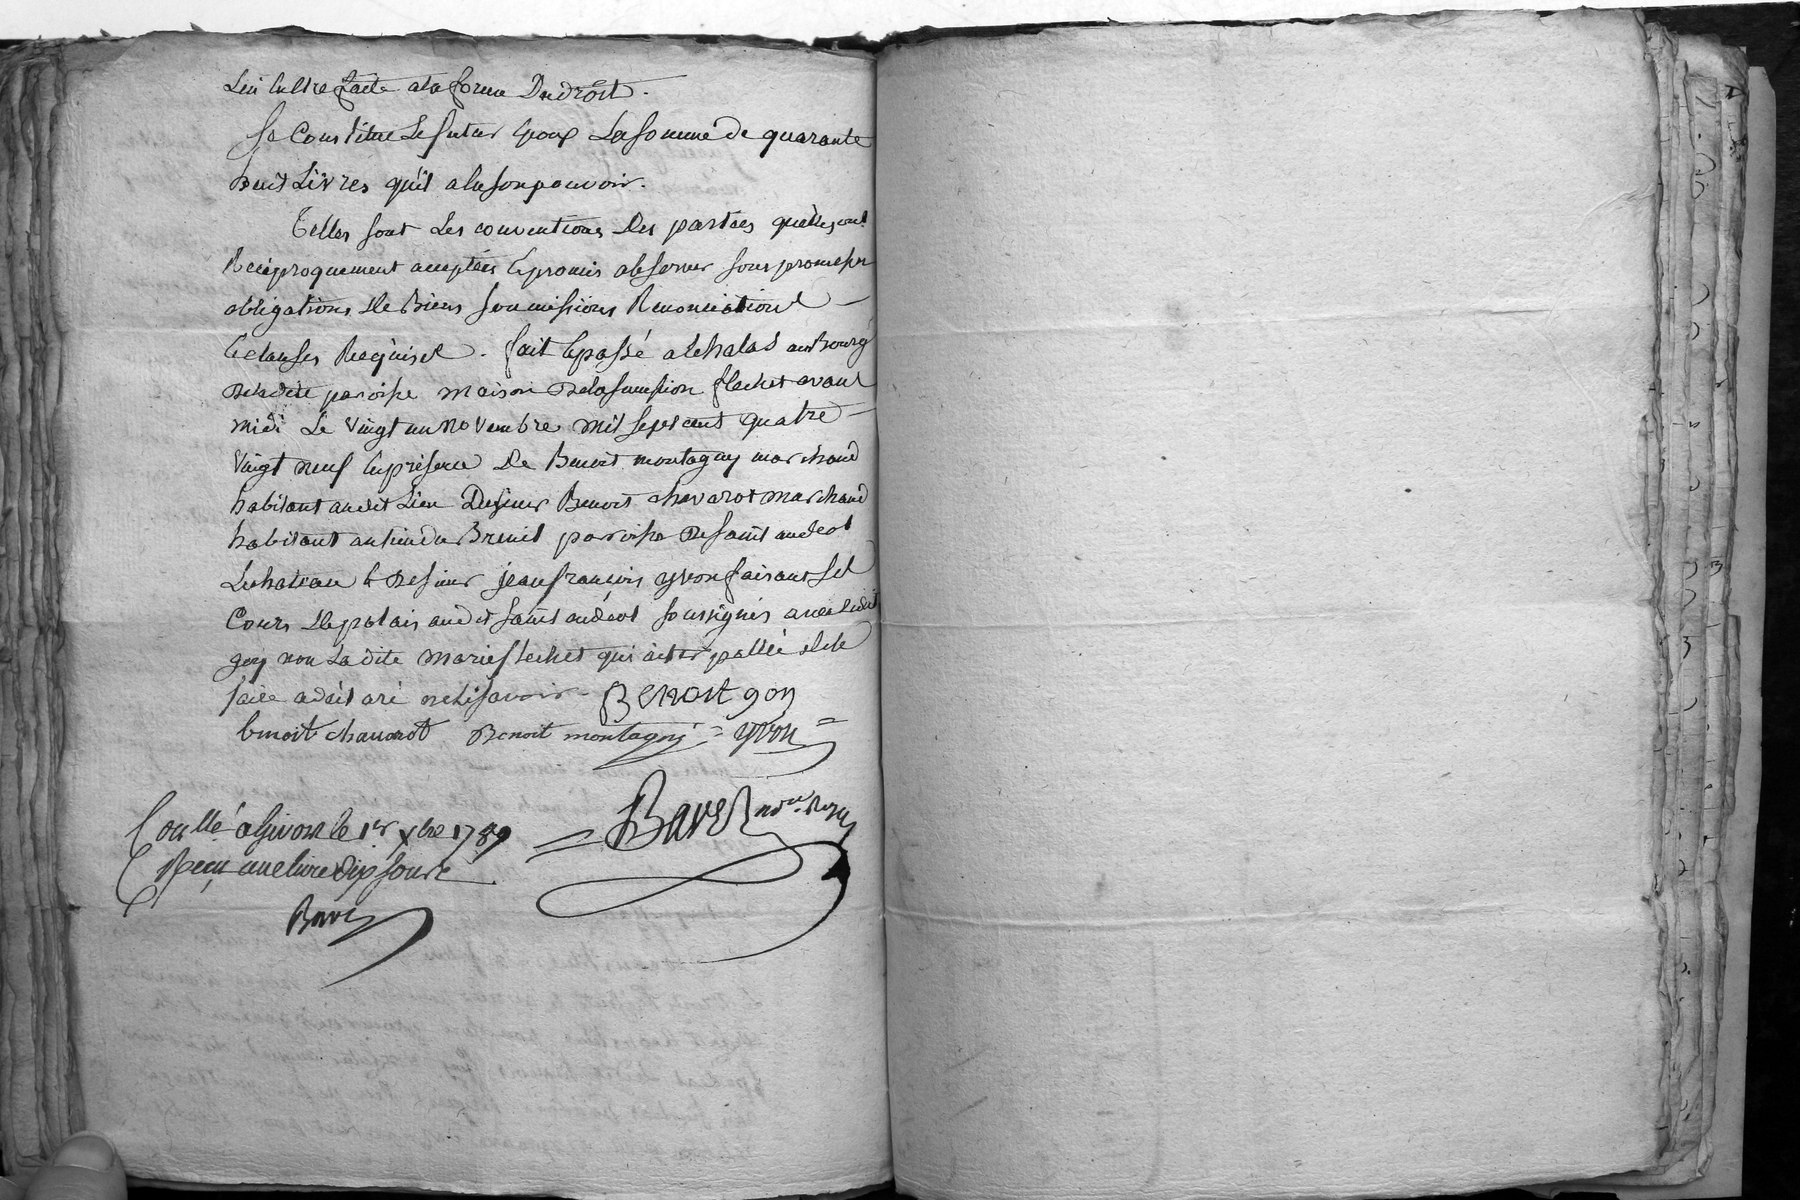 lui Entre faite ala forme Du droit.
Se Constitue Le futur Epoux La somme de quarante
huit Livres qu'il a En son pouvoir.
Telles sont Les conventions Des parties quelles ont
Reciproquement acceptées Epromis observer sous promesses
obligations De Biens soumissions Renonciations
Eclauses Requises. fait Epassé a Echalas au Bourg
De ladite paroisse maison De la flechet avant
midi Le vingt un novembre mil sept cent quatre
vingt neuf En présence De Benoit montagny marchand
habitant audit Lieu Du sieur Benoit chavarot marchand
habitant au lieu du Breuil paroisse De saint andeol
Le chateau & De sieur jean francois yvon faisant Ses
Cours De palais audit saint andéol soussignés avec Ledit
goy non La dite marie flechet qui de
faire a déclaré ne le savoir. BENOIT goy
benoit chavarot Benoit montagny = yvon =
= Bavet nore Royal
Con llé a Givors le 1er Xbre 1789
Recu une livre dix sous
Bavet